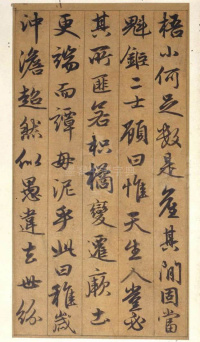 梧小何足数是产其间固当
魁钜二士顾曰惟天生人岂必
其所匪若枳橘變遷厥土
更端而譚毋泥乎此曰稚歲
沖澹超然似愚違去世紛